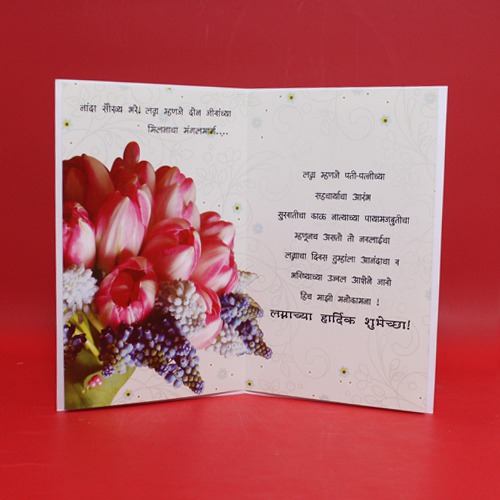 नांदा सौख्य भरे! लग्न म्हणजे दोन जीवांच्या
मिलनाचा मंगलमार्ग....
लग्न म्हणजे पती-पत्नीच्या
सहचार्याचा आरंभ
सुरवातीचा काळ नात्याच्या पायामजबुतीचा
म्हणूनच असतो तो नवलाईचा
लग्नाचा दिवस तुम्हांला आनंदाचा व
भविष्याच्या उज्वल आशेने जावो
हिच माझी मनोकामना !
लग्नाच्या हार्दिक शुभेच्छा!